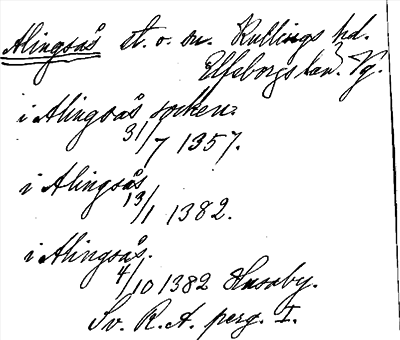 Alingsås st. o. sn. Kullings hd.
Elfsborgs län. Vg.
i Alingsås socken:
31/7 1357.
i Alingsås
13/1 1382.
i Alingsås.
4/10 1382 Husaby.
Sv. R. A. perg. I.